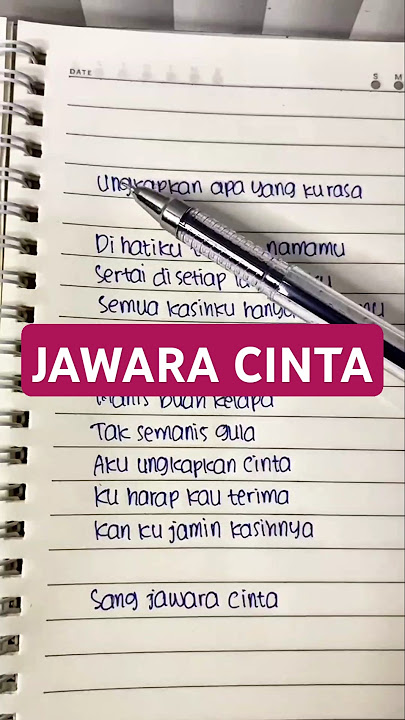 DATE
S M
Ungkapkan apa yang kurasa
Di hatiku namamu
Sertai di setiap
Semua kasihku
JAWARA CINTA
Manis buah kelapa
Tak semanis gula
Aku ungkapkan cinta
Ku harap kau terima
Kan ku jamin kasihnya
Sang jawara cinta